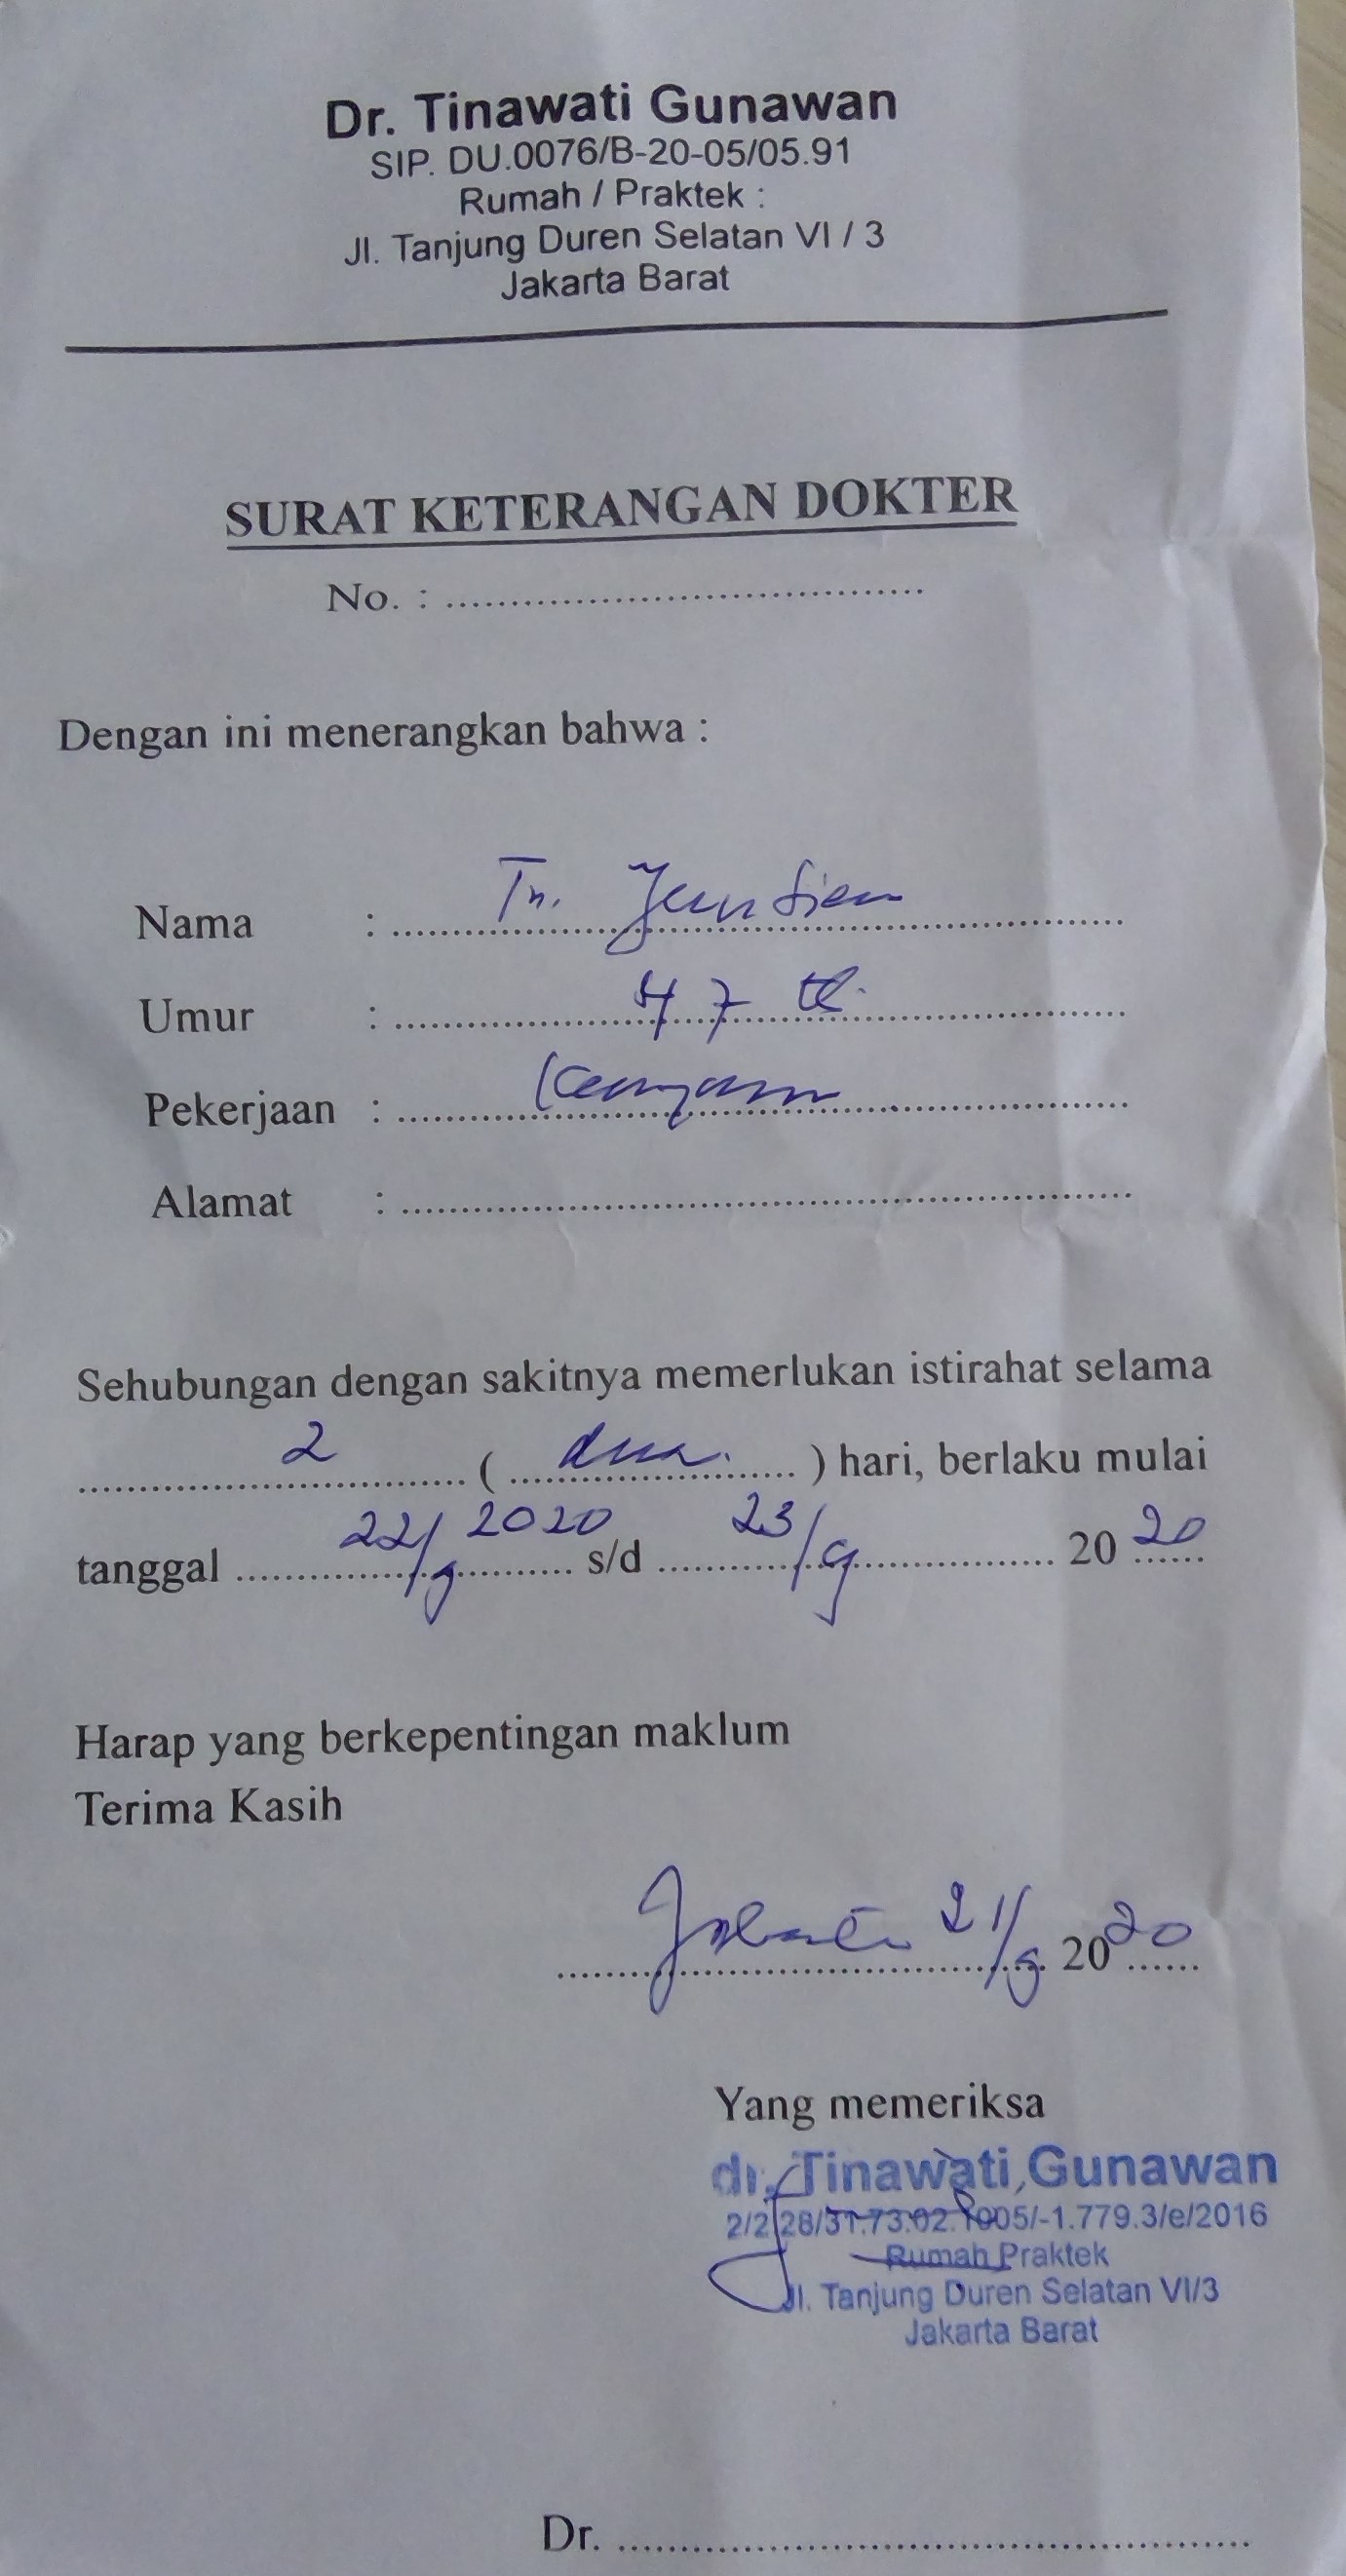 Dr. Tinawati Gunawan
SIP. DU.0076/B-20-05/05.91
Rumah / Praktek :
Jl. Tanjung Duren Selatan VI / 3
Jakarta Barat
SURAT KETERANGAN DOKTER
No. : ........................................
Dengan ini menerangkan bahwa :
Nama : Tn.
Umur : 47 th.
Pekerjaan : Karyawan
Alamat : ........................................
Sehubungan dengan sakitnya memerlukan istirahat selama
2 ( dua. ) hari, berlaku mulai
tanggal 22/9 2020 s/d 23/9 20 20
Harap yang berkepentingan maklum
Terima Kasih
Jakarta 21/9 2020
Yang memeriksa
dr. Tinawati Gunawan
2/2.28/31.73.02.1005/-1.779.3/e/2016
Rumah Praktek
Jl. Tanjung Duren Selatan VI/3
Jakarta Barat
Dr. ........................................